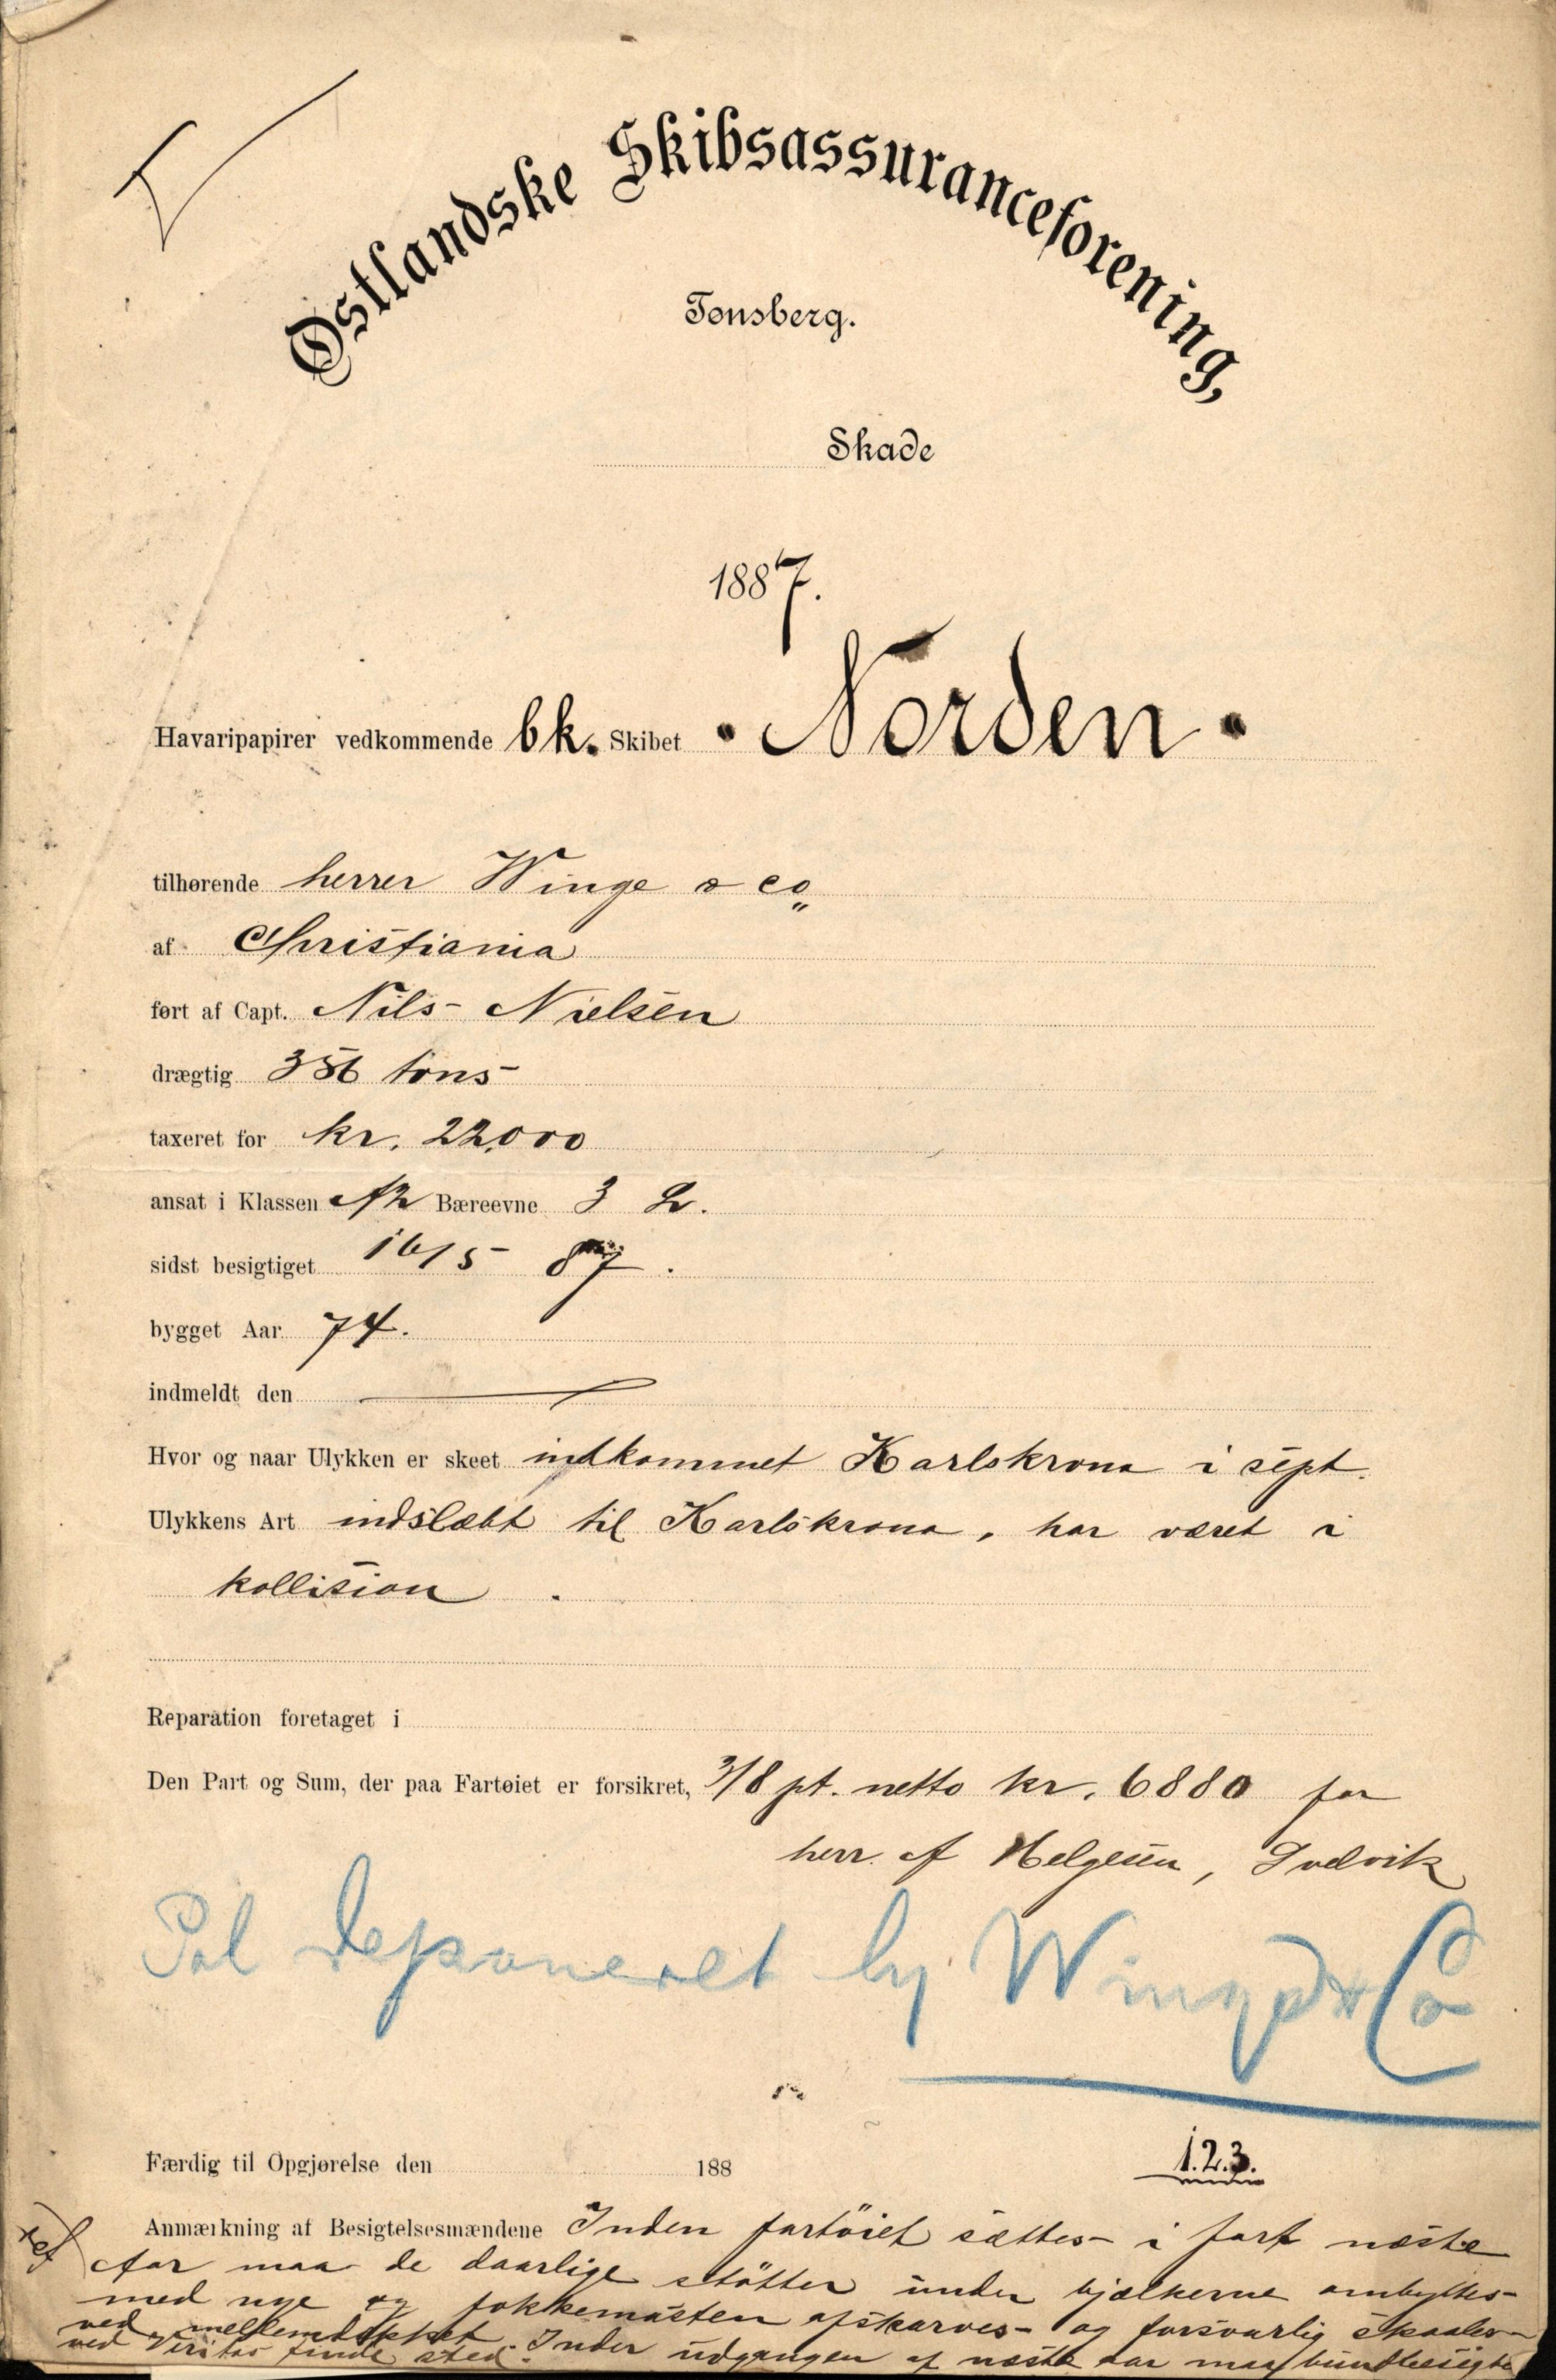 Østlandske Skibsassuranceforening,
Tønsberg.
Skade
1887.
Havaripapirer vedkommende bk. Skibet "Norden"
tilhørende herrer Winge & Co
af Christiania
ført af Capt. Nils Nielsen
drægtig 356 tons
taxeret for kr. 22,000
ansat i Klassen A2 Bæreevne 3 L.
sidst besigtiget 16/5 87.
bygget Aar 74.
indmeldt den
Hvor og naar Ulykken er skeet indkommet Karlskrona i sept.
Ulykkens Art indslæbt til Karlskrona, har været i
kollision.
Reparation foretaget i
Den Part og Sum, der paa Fartøiet er forsikret, 3/8 pt. netto kr. 6880 for
herr A Helgesen, Svelvik
Pol deponeret hj Winge & Co
Færdig til Opgjørelse den 188
1.2.3.
Anmærkning af Besigtelsesmændene Inden fartöiet sættes i fart næste
Aar maa de daarlige stötter under bjælkerne ombyttes
med nye og fokkemasten afskarves og forsvarlig skaales
ved mellemdækket. Inden udgangen af næste aar maa bundbesigt
ved Veritas finde sted.